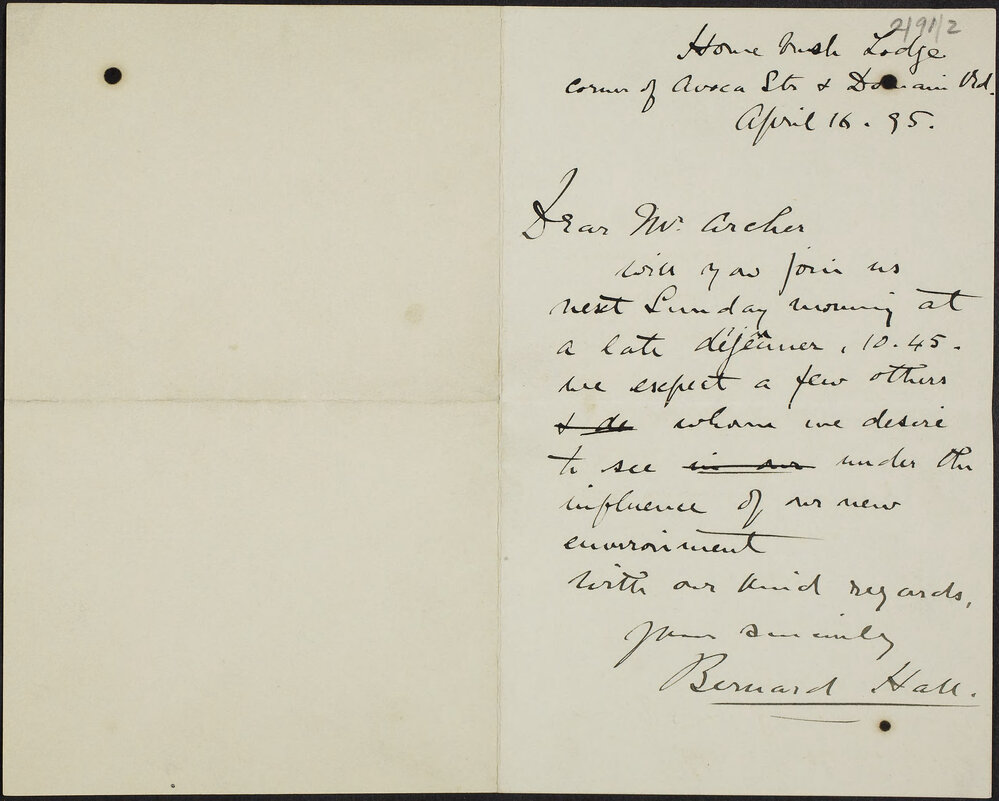 2/91/2
Home bush Lodge
corner of Avoca Str & Domain Rd.
April 16 . 95.
Dear Mr. Archer
will you join us
next Sunday morning at
a late déjeûner, 10.45.
we expect a few others
& do whom we desire
to see in our under the
influence of our new
environment
With our kind regards,
yours sincerely
Bernard Hall.